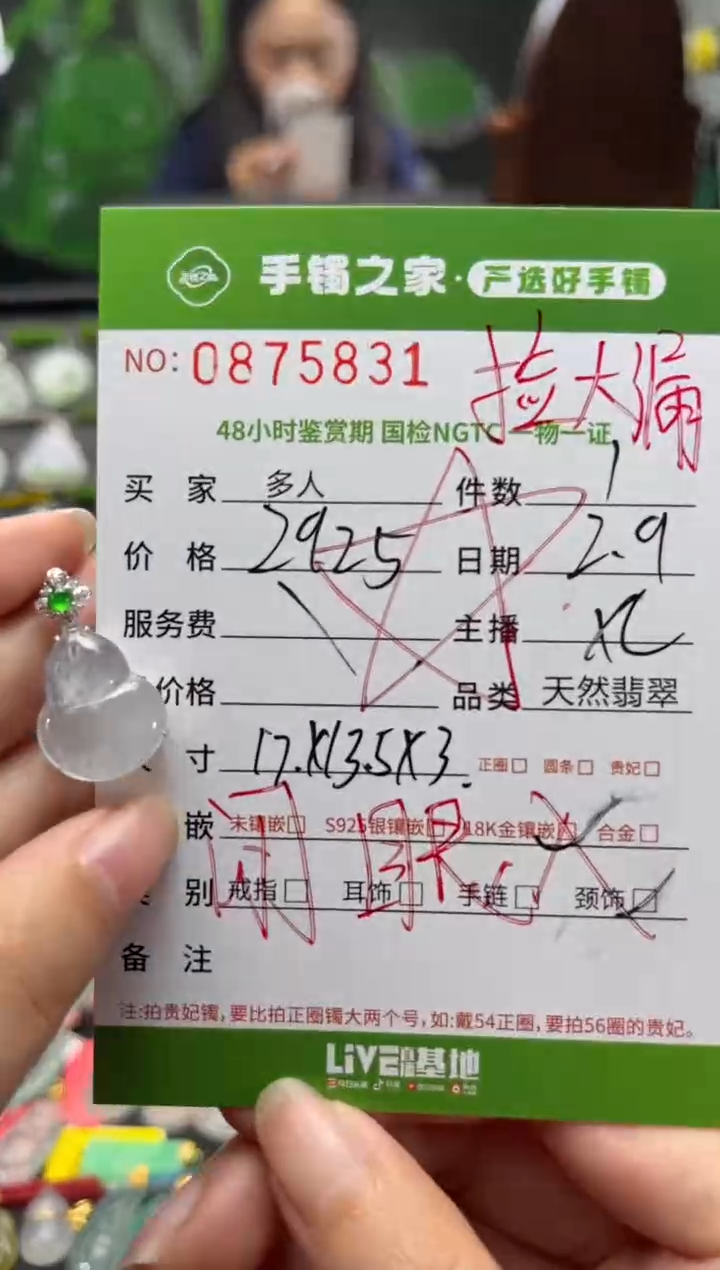 手镯之家·严选好手镯
NO: 0875831
捡大漏
48小时鉴赏期 国检NGTC 一物一证
买家 多人 件数 1
价格 2925 日期 2.9
服务费 主播
价格 品类 天然翡翠
寸 17.X13.5X3. 正圈 圆条 贵妃
嵌 未镶嵌 S925银镶嵌 18K金镶嵌 合金
闭眼入
别 戒指 耳饰 手链 颈饰
备注
注:拍贵妃镯,要比拍正圈镯大两个号,如:戴54正圈,要拍56圈的贵妃。
LIVE 基地